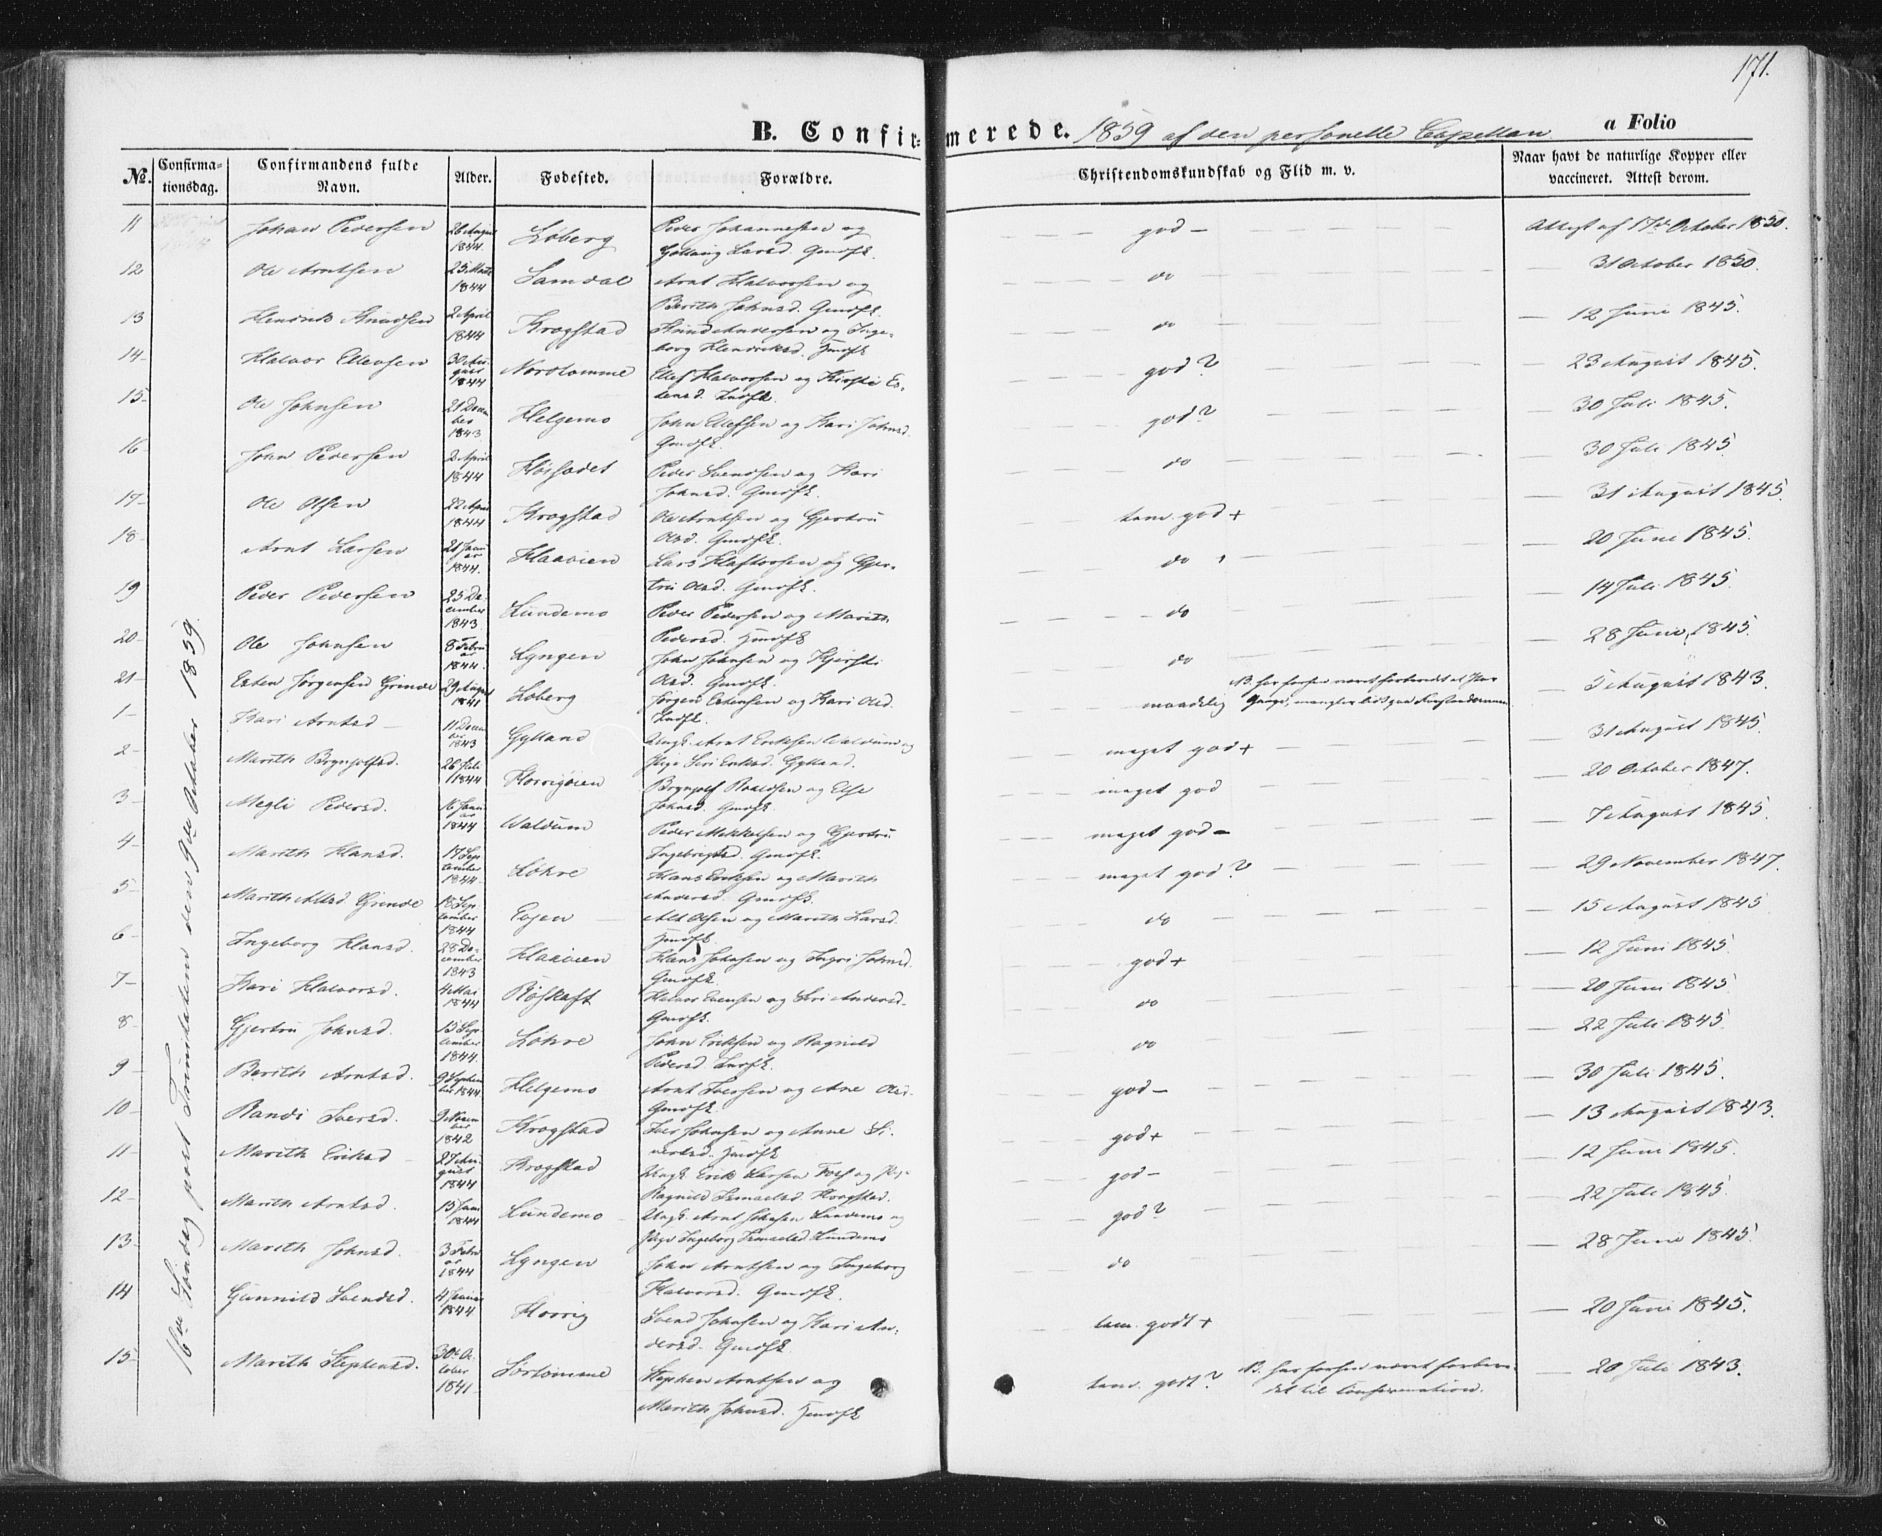 171.
B. Confirmerede. 1859 af den personelle Capellan a Folio
No. Confirmationsdag. Confirmandens fulde Navn. Alder. Fødested. Forældre. Christendomskundskab og Flid m. v. Naar havt de naturlige Kopper eller vaccineret. Attest derom.
16de Søndag post Trinitatem den 9de October 1859.
11 Johan Pedersen 26 August 1844. Løberg Peder Johannesen og Larsd. Gmdfk. god – Attest af 17de October 1850.
12 Ole Arntsen 25 Marts 1844 Samdal Arnt Halvorsen og Berith Johnsd. Gmdfk. do — 31 October 1850.
13 Hendrik Knudsen 2 April 1844 Krogstad Knud Andersen og Ingeborg Hendriksd. Hmdfk do — 12 Juni 1845.
14 Halvor Ellevsen 30 August 1844 Nordtømme Ellef Halvorsen og Kirsti Estensd. Indfk. god? — 23 August 1845.
15 Ole Johnsen 21 December 1843 Helgemo John Ellefsen og Kari Johnsd. Gmdfk god? — 30 Juli 1845.
16 John Pedersen 2 April 1844 Peder Svendsen og Kari Johnsd. Gmdfk. do — 30 Juli 1845
17 Ole Olsen 22 April 1844 Krogstad Ole Arntsen og Gjertru Olsd. Gmdfk. tem. god + — 31 August 1845.
18 Arnt Larsen 21 Januar 1844. Haavien Lars Haftorsen og Gjertru Olsd. Gmdfk. do — 20 Juni 1845.
19 Peder Pedersen 25 December 1843 Lundemo Peder Pedersen og Marith Pedersd. Hmdfk do — 14 Juli 1845
20 Ole Johnsen 8 Februar 1844. Lyngen John Johnsen og Kjersti Olsd. Gmdfk. do — 28 Juni 1845.
21 Esten Jørgensen Grinde 29 August 1841 Løberg Jørgen Estensen og Kari Olsd. Indfk. maadelig NB. har forhen været forberedt et Par Gange, mangler lidt paa Forstandsevnen — 5 August 1843.
1 Kari Arntsd 11 December 1843 Gylland Ungk. Arnt Eriksen Waldum og Pige Siri Eriksd. Gylland. meget god + — 31 August 1845
2 Marith Brynjolfsd. 26 Juli 1844 Horrigøien Brynjolf Roaldsen og Else Johnsd. Gmdfk. meget god — 20 October 1847.
3 Megli Pedersd. 16 Januar 1844 Waldum Peder Mikkelsen og Gjertru Ingebrigtsd. Gmdfk. meget god – — 7 August 1845
4 Marith Hansd. 17 September 1844. Løhre Hans Eriksen og Marith Andersd. Gmdfk. meget god? — 29 November 1847.
5 Marith Alfsd Grinde 18 September 1844 Eggen Alf Olsen og Marith Larsd. Hmdfk do — 15 August 1845
6 Ingeborg Hansd. 28 December 1843 Haavien Hans Johnsen og Ingri Johnsd. Gmdfk. god + — 12 Juni 1845
7 Kari Halvorsd. 4 Mai 1844 Røskaft Halvor Evensen og Siri Andersd. Gmdfk. do — 20 Juni 1845
8 Gjertru Johnsd. 15 September 1844. Løhre John Eriksen og Ragnild Pedersd Indfk. do — 22 Juli 1845.
9 Berith Arntsd. 9 September 1844 Helgemo Arnt Iversen og Ane Olsd. Gmdfk. god – — 30 Juli 1845.
10 Randi Iversd. 9 November 1842 Krogstad Iver Johnsen og Anne Sivertsd. Hmdfk god + — 13 August 1843.
11 Marith Eriksd 27 August 1844 Krogstad Ungk Erik Larsen og Pige Ragnild Ismaelsd. Krogstad. god – — 12 Juni 1845.
12 Marith Arntsd. 15 Juni 1844 Lundemo Ungk. Arnt Johnsen Lundemo og Pige Ingeborg Ismaelsd Lundemo god? — 22 Juli 1845.
13 Marith Johnsd. 3 Februar 1844 Lyngen John Arntsen og Ingeborg Halvorsd. Gmdfk. do — 28 Juni 1845.
14 Gunnild Svendsd. 4 Januar 1844 Horrig Svend Johnsen og Kari Andersd. Gmdfk tem. godt + — 20 Juni 1845.
15 Marith Stephensd. 30te October 1841 Sørtømme Stephen Arntsen og Marith Johnsd. Hmdfk tem. godt? NB. har forhen været forberedet til Confirmation. — 20 Juli 1843.